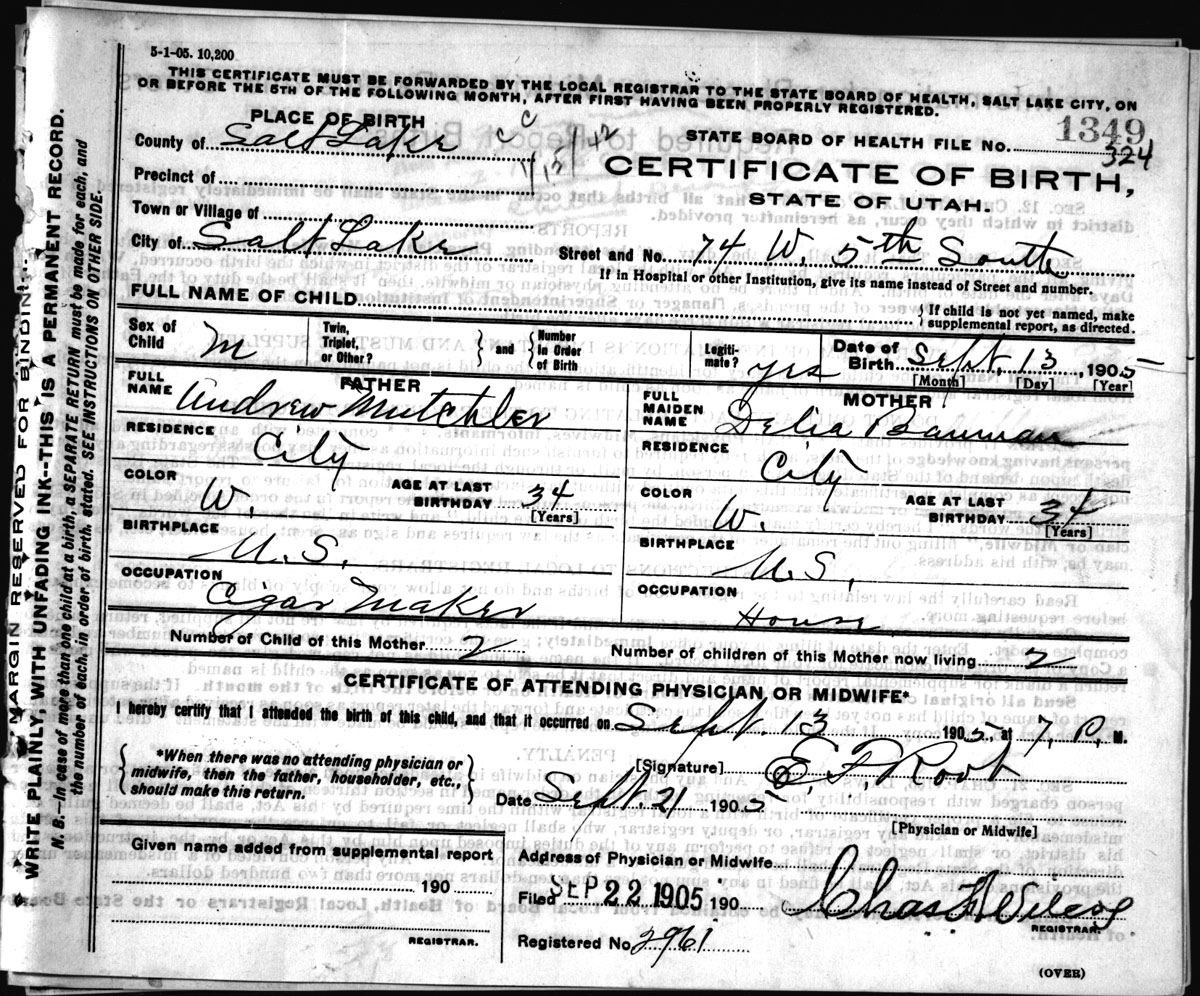 5-1-05. 10,200
THIS CERTIFICATE MUST BE FORWARDED BY THE LOCAL REGISTRAR TO THE STATE BOARD OF HEALTH, SALT LAKE CITY, ON
OR BEFORE THE 5TH OF THE FOLLOWING MONTH, AFTER FIRST HAVING BEEN PROPERLY REGISTERED.
PLACE OF BIRTH
County of Salt Lake
Precinct of
Town or Village of
City of Salt Lake
STATE BOARD OF HEALTH FILE No. 1349
324
CERTIFICATE OF BIRTH,
STATE OF UTAH.
Street and No. 74 W. 5th South
If in Hospital or other Institution, give its name instead of Street and number.
FULL NAME OF CHILD
{ If child is not yet named, make
supplemental report, as directed.
Sex of Child M
Twin, Triplet, or Other?
} and {
Number in Order of Birth
Legiti-mate? yes
Date of Birth Sept. 13, 1905
[Month] [Day] [Year]
FATHER
FULL NAME Andrew Mutchler
RESIDENCE City
COLOR W.
AGE AT LAST BIRTHDAY 34
[Years]
BIRTHPLACE U.S.
OCCUPATION Cigar Maker
MOTHER
FULL MAIDEN NAME Delia Bauman
RESIDENCE City
COLOR W.
AGE AT LAST BIRTHDAY 34
[Years]
BIRTHPLACE U.S.
OCCUPATION House
Number of Child of this Mother 2
Number of children of this Mother now living 2
CERTIFICATE OF ATTENDING PHYSICIAN OR MIDWIFE*
I hereby certify that I attended the birth of this child, and that it occurred on Sept. 13 1905, at 7, P. M.
{ *When there was no attending physician or
midwife, then the father, householder, etc.,
should make this return. }
[Signature] E. F. Root
Date Sept. 21 1905
[Physician or Midwife]
Given name added from supplemental report
190
REGISTRAR.
Address of Physician or Midwife
Filed SEP 22 1905 190 Chas F Wilcox
REGISTRAR.
Registered No. 2961
(OVER)
MARGIN RESERVED FOR BINDING
WRITE PLAINLY, WITH UNFADING INK--THIS IS A PERMANENT RECORD.
N. B.--In case of more than one child at a birth, a SEPARATE RETURN must be made for each, and
the number of each, in order of birth, stated. SEE INSTRUCTIONS ON OTHER SIDE.